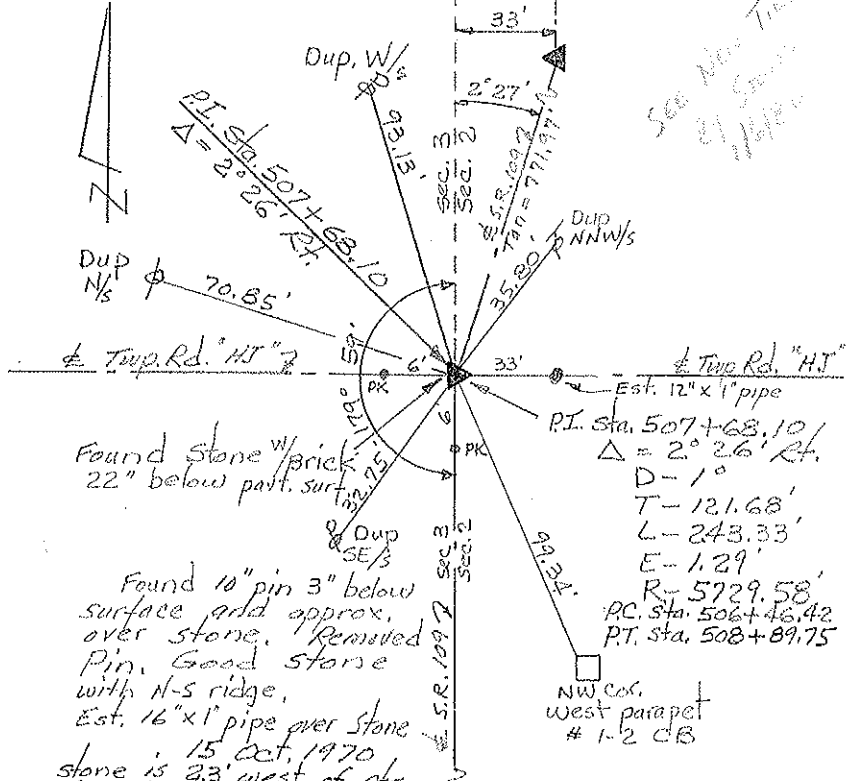 33'
See New
Dup. W/s
2° 27'
P.I. Sta. 507+68.10
Δ = 2° 26' Rt.
93.13'
Sec. 3
Sec. 2
℄ S.R. 109
Tan = 771.97'
N
Dup
NNW/s
35.80'
Dup
N/s
70.85'
℄ Twp. Rd. "HJ"
6'
PK
33'
℄ Twp Rd. "HJ"
Est. 12" x 1" pipe
179° 59'
6'
PK
P.I. Sta. 507+68.10
Δ = 2° 26' Rt.
D - 1°
T - 121.68'
L - 243.33'
E - 1.29'
R - 5729.58'
P.C. Sta. 506+46.42
P.T. Sta. 508+89.75
Found Stone W/Brick
22" below pavt. surf.
32.75'
Dup
SE/s
Sec 3
Sec. 2
99.34'
℄ S.R. 109
Found 10" pin 3" below
surface and approx.
over stone. Removed
Pin. Good stone
with N-S ridge.
Est. 16" x 1" pipe over stone
15 Oct. 1970
stone is 2.3' west of
NW Cor.
West parapet
# 1-2 CB